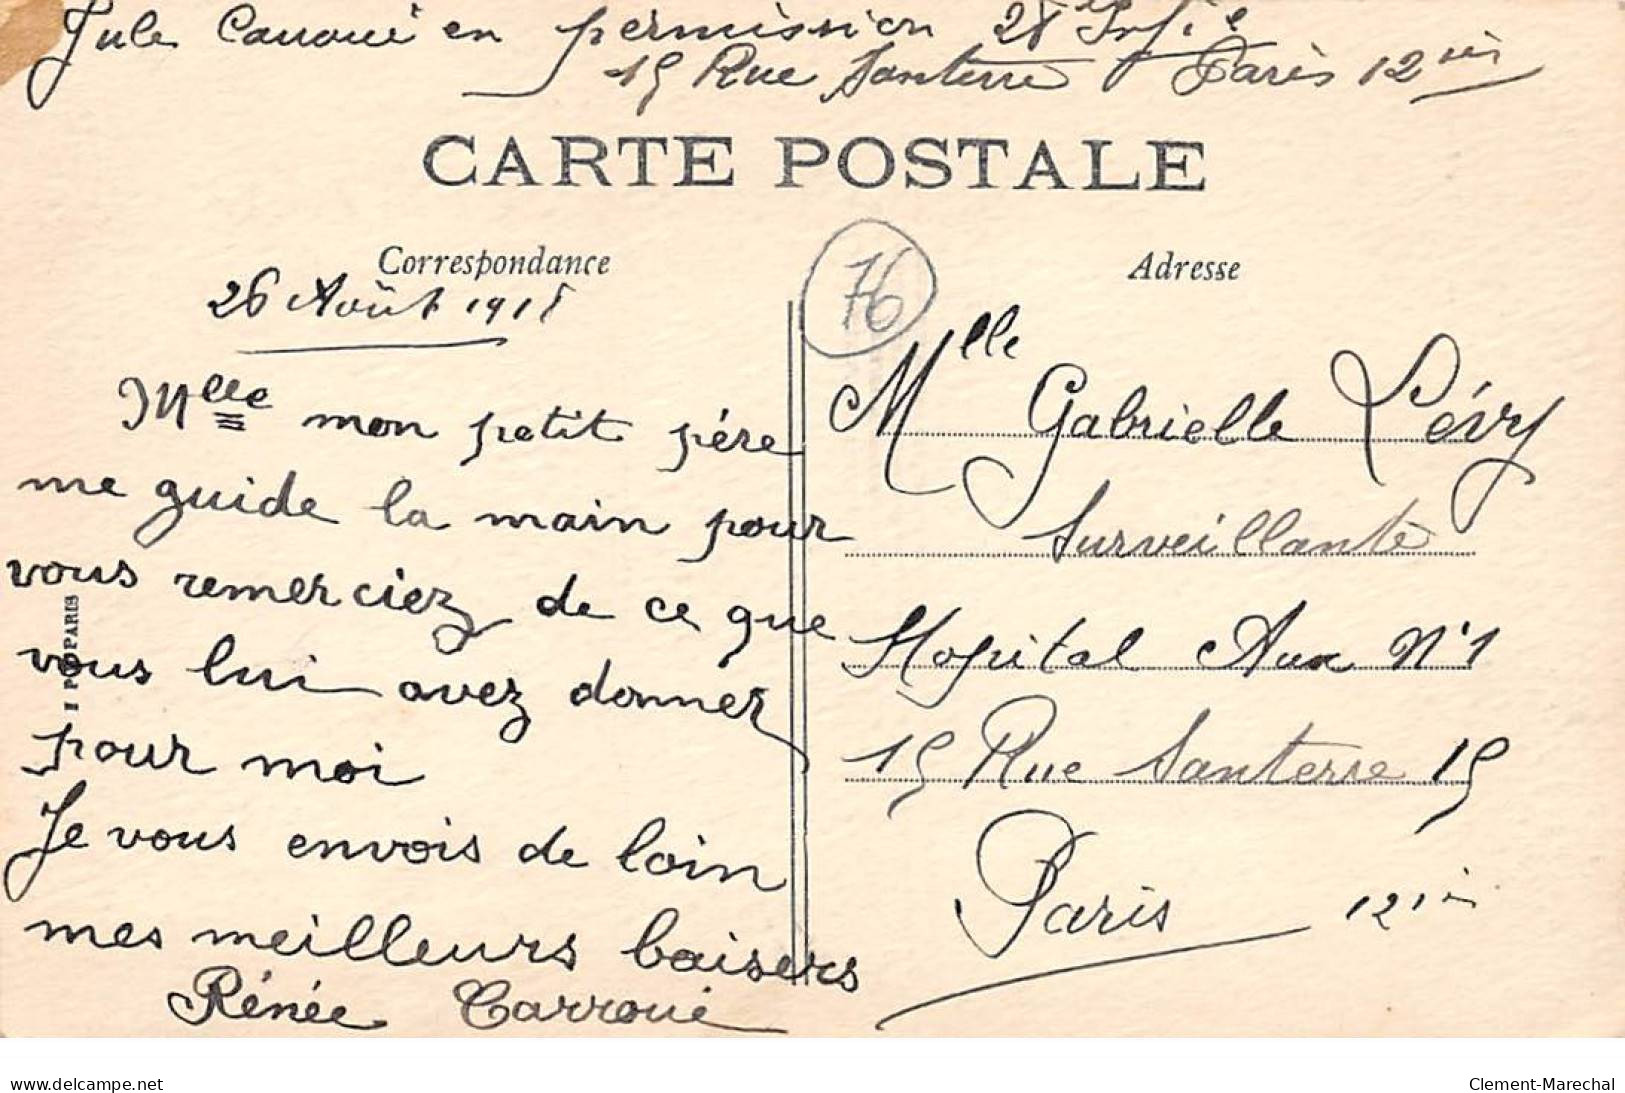 Jule Carroué en permission 28 Infie
15 Rue Santerre Paris 12ier
CARTE POSTALE
Correspondance
26 Août 1918
Mlle mon petit père
me guide la main pour
vous remerciez de ce que
vous lui avez donner
pour moi
Je vous envois de loin
mes meilleurs baisers
Rénée Carroué
76
Adresse
Mlle Gabrielle Lévy
Surveillante
Hopital Aux N°1
15 Rue Santerre 15
Paris 12ie
PARIS
www.delcampe.net
Clement-Marechal